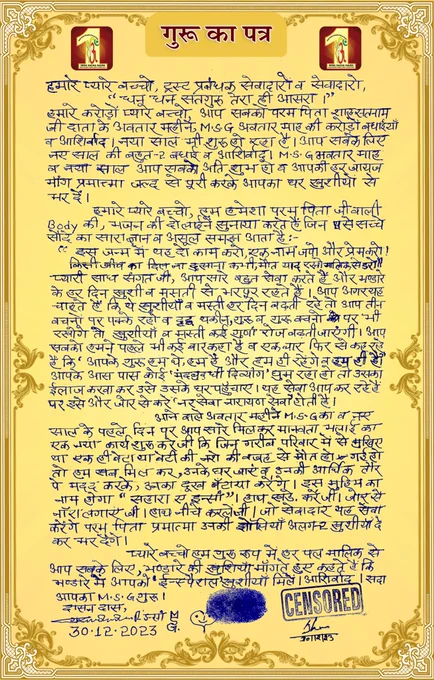 गुरू का पत्र
हमारे प्यारे बच्चो, ट्रस्ट प्रबंधक सेवादारो व सेवादारो,
"धन धन सतगुरू तेरा ही आसरा।"
हमारे करोड़ों प्यारे बच्चो, आप सबको परम पिता शाह सतनाम
जी दाता के अवतार महीने, M.S.G अवतार माह की करोड़ों बधाईयाँ
व आशिर्वाद। नया साल भी शुरू हो रहा है। आप सबके लिए
नए साल की बहुत-2 बधाई व आशिर्वाद। M.S.G अवतार माह
व नया साल आप सबको अति शुभ हो व आपकी हर जायज
माँग प्रमात्मा जल्द से पूरी करके आपका घर खुशीयों से
भर दें।
हमारे प्यारे बच्चो, हम हमेशा परम पिता जी वाली
Body की, भजन की दो लाइनें सुनाया करते हैं जिन से सच्चे
सौदे का सारा ज्ञान व असूल समझ आता है:-
"इस जन्म में यह दो काम करो, एक नाम जपो और प्रेम करो।
किसी जीव का दिल ना दुखाना कभी, मौत याद रखो मालिक से डरो॥"
प्यारी साध संगत जी, आप सारे बहुत सेवा करते हैं और भण्डारे
के हर दिन खुशी व मस्ती से भरपूर रहते हैं। आप अगर यह
चाहते हैं कि ये खुशीयाँ व मस्ती हर दिन बढ़ती रहे तो आप तीन
वचनों पर पक्के रहो व दृढ़ यकीन, गुरू व गुरू वचनों पर भी
रखोगे तो खुशीयाँ व मस्ती कई गुणा रोज बढ़ती जाएंगी। आप
सबको हमने पहले भी कई बार कहा है व एक बार फिर से कह रहे
हैं कि 'आपके गुरू हम थे, हम हैं और हम ही रहेंगे व हम ही हैं'
आपके आस पास कोई 'मंदबुद्धी दिव्यांग' घुम रहा हो तो उसका
ईलाज करवा कर उसे उसके घर पहुंचाए। यह सेवा आप कर रहे हैं
पर इसे और जोर से करें 'नर सेवा नारायण सेवा' होती है।
आने वाले अवतार महीने M.S.G का व नए
साल के पहले दिन पर आप सारे मिलकर मानवता भलाई का
एक नया कार्य शुरू करें जी कि जिन गरीब परिवार में से मुखिया
या एक ही बेटा या बेटी की नशे की वजह से मौत हो गई हो
तो हम सब मिल कर, उनके घर जाएं व उनकी आर्थिक तौर
पे मदद करके, उनका दुख बंटाया करेंगे। इस मुहिम का
नाम होगा "सहारा ए इन्सां"। हाथ खड़े करें जी। जोर से
नारा लगाएं जी। हाथ नीचे कर लें जी। जो सेवादार यह सेवा
करेंगे परम पिता प्रमात्मा उनकी झोलियाँ अलग से खुशीयाँ दे
कर भर देंगे।
प्यारे बच्चो हम गुरू रूप में हर पल मालिक से
आप सबके लिए, भण्डारे की खुशियाँ माँगते हुए कहते हैं कि
भण्डारे में आपको ई-स्पैशल खुशीयाँ मिलें। आशिर्वाद। सदा
आपका M.S.G गुरू।
दासन दास,
30.12.2023
CENSORED